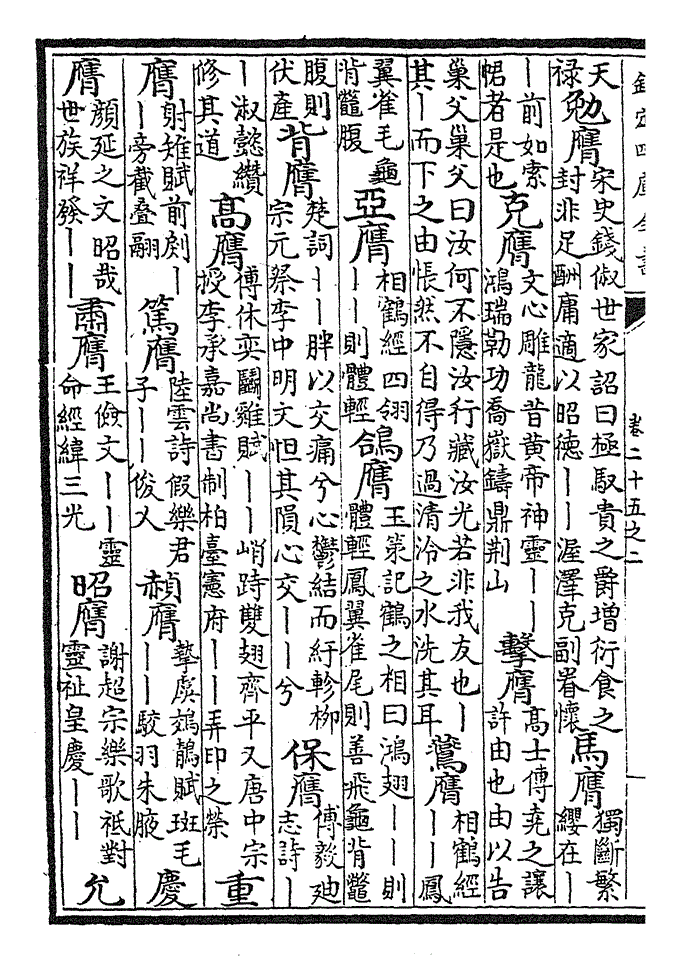 欽定四庫全書 卷二十五之二
天禄勉膺宋史錢俶世家詔曰極馭貴之爵增衍食之封非足酬庸適以昭德丨丨渥澤克副眷懷馬膺獨斷繁纓在丨
丨前如索裙者是也克膺文心雕龍昔黄帝神靈丨丨鴻瑞勒功喬嶽鑄鼎荆山擊膺髙士傳堯之讓許由也由以告
巢父巢父曰汝何不隱汝行藏汝光若非我友也丨其丨而下之由悵然不自得乃過清泠之水洗其耳鶩膺相鶴經丨丨鳳
翼雀毛龜背鼈腹亞膺相鶴經四翎丨丨則體輕鴿膺玉策記鶴之相曰鴻翅丨丨則體輕鳳翼雀尾則善飛龜背鼈
腹則伏產背膺楚詞丨丨胖以交痛兮心鬱結而紆軫栁宗元祭李中明文怛其隕心交丨丨兮保膺傅毅廸志詩丨
丨淑懿纘修其道髙膺傅休奕鬬雞賦丨丨峭跱雙翅齊平又唐中宗授李承嘉尚書制柏臺憲府丨丨弄印之榮重
膺射雉賦前剡丨丨旁截疊翮篤膺陸雲詩假樂君子丨丨俊乂赬膺摯虞鵁鶄賦斑毛丨丨駮羽朱腋慶
膺顔延之文昭哉世族祥發丨丨肅膺王儉文丨丨靈命經緯三光昭膺謝超宗樂歌祗對靈祉皇慶丨丨允